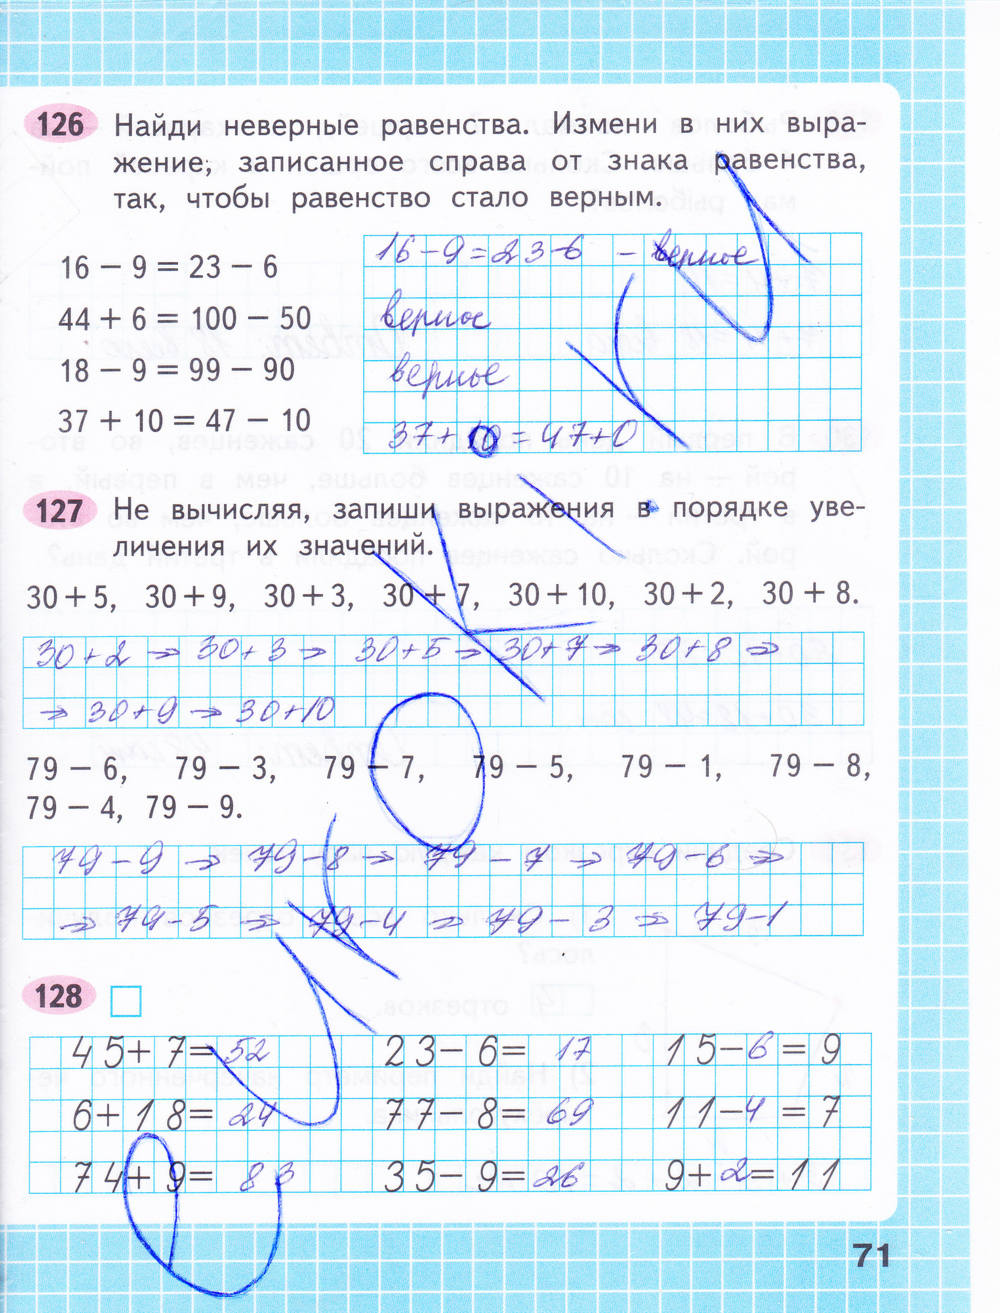 126 Найди неверные равенства. Измени в них выра-
жение, записанное справа от знака равенства,
так, чтобы равенство стало верным.
16 − 9 = 23 − 6
16 − 9 = 23 − 6 – верное
44 + 6 = 100 − 50
верное
18 − 9 = 99 − 90
верное
37 + 10 = 47 − 10
37 + 10 = 47 + 0
127 Не вычисляя, запиши выражения в порядке уве-
личения их значений.
30 + 5, 30 + 9, 30 + 3, 30 + 7, 30 + 10, 30 + 2, 30 + 8.
30 + 2 → 30 + 3 → 30 + 5 → 30 + 7 → 30 + 8 →
→ 30 + 9 → 30 + 10
79 − 6, 79 − 3, 79 − 7, 79 − 5, 79 − 1, 79 − 8,
79 − 4, 79 − 9.
79 − 9 → 79 − 8 → 79 − 7 → 79 − 6 →
→ 79 − 5 → 79 − 4 → 79 − 3 → 79 − 1
128
45 + 7 = 52 23 − 6 = 17 15 − 6 = 9
6 + 18 = 24 77 − 8 = 69 11 − 4 = 7
74 + 9 = 83 35 − 9 = 26 9 + 2 = 11
71